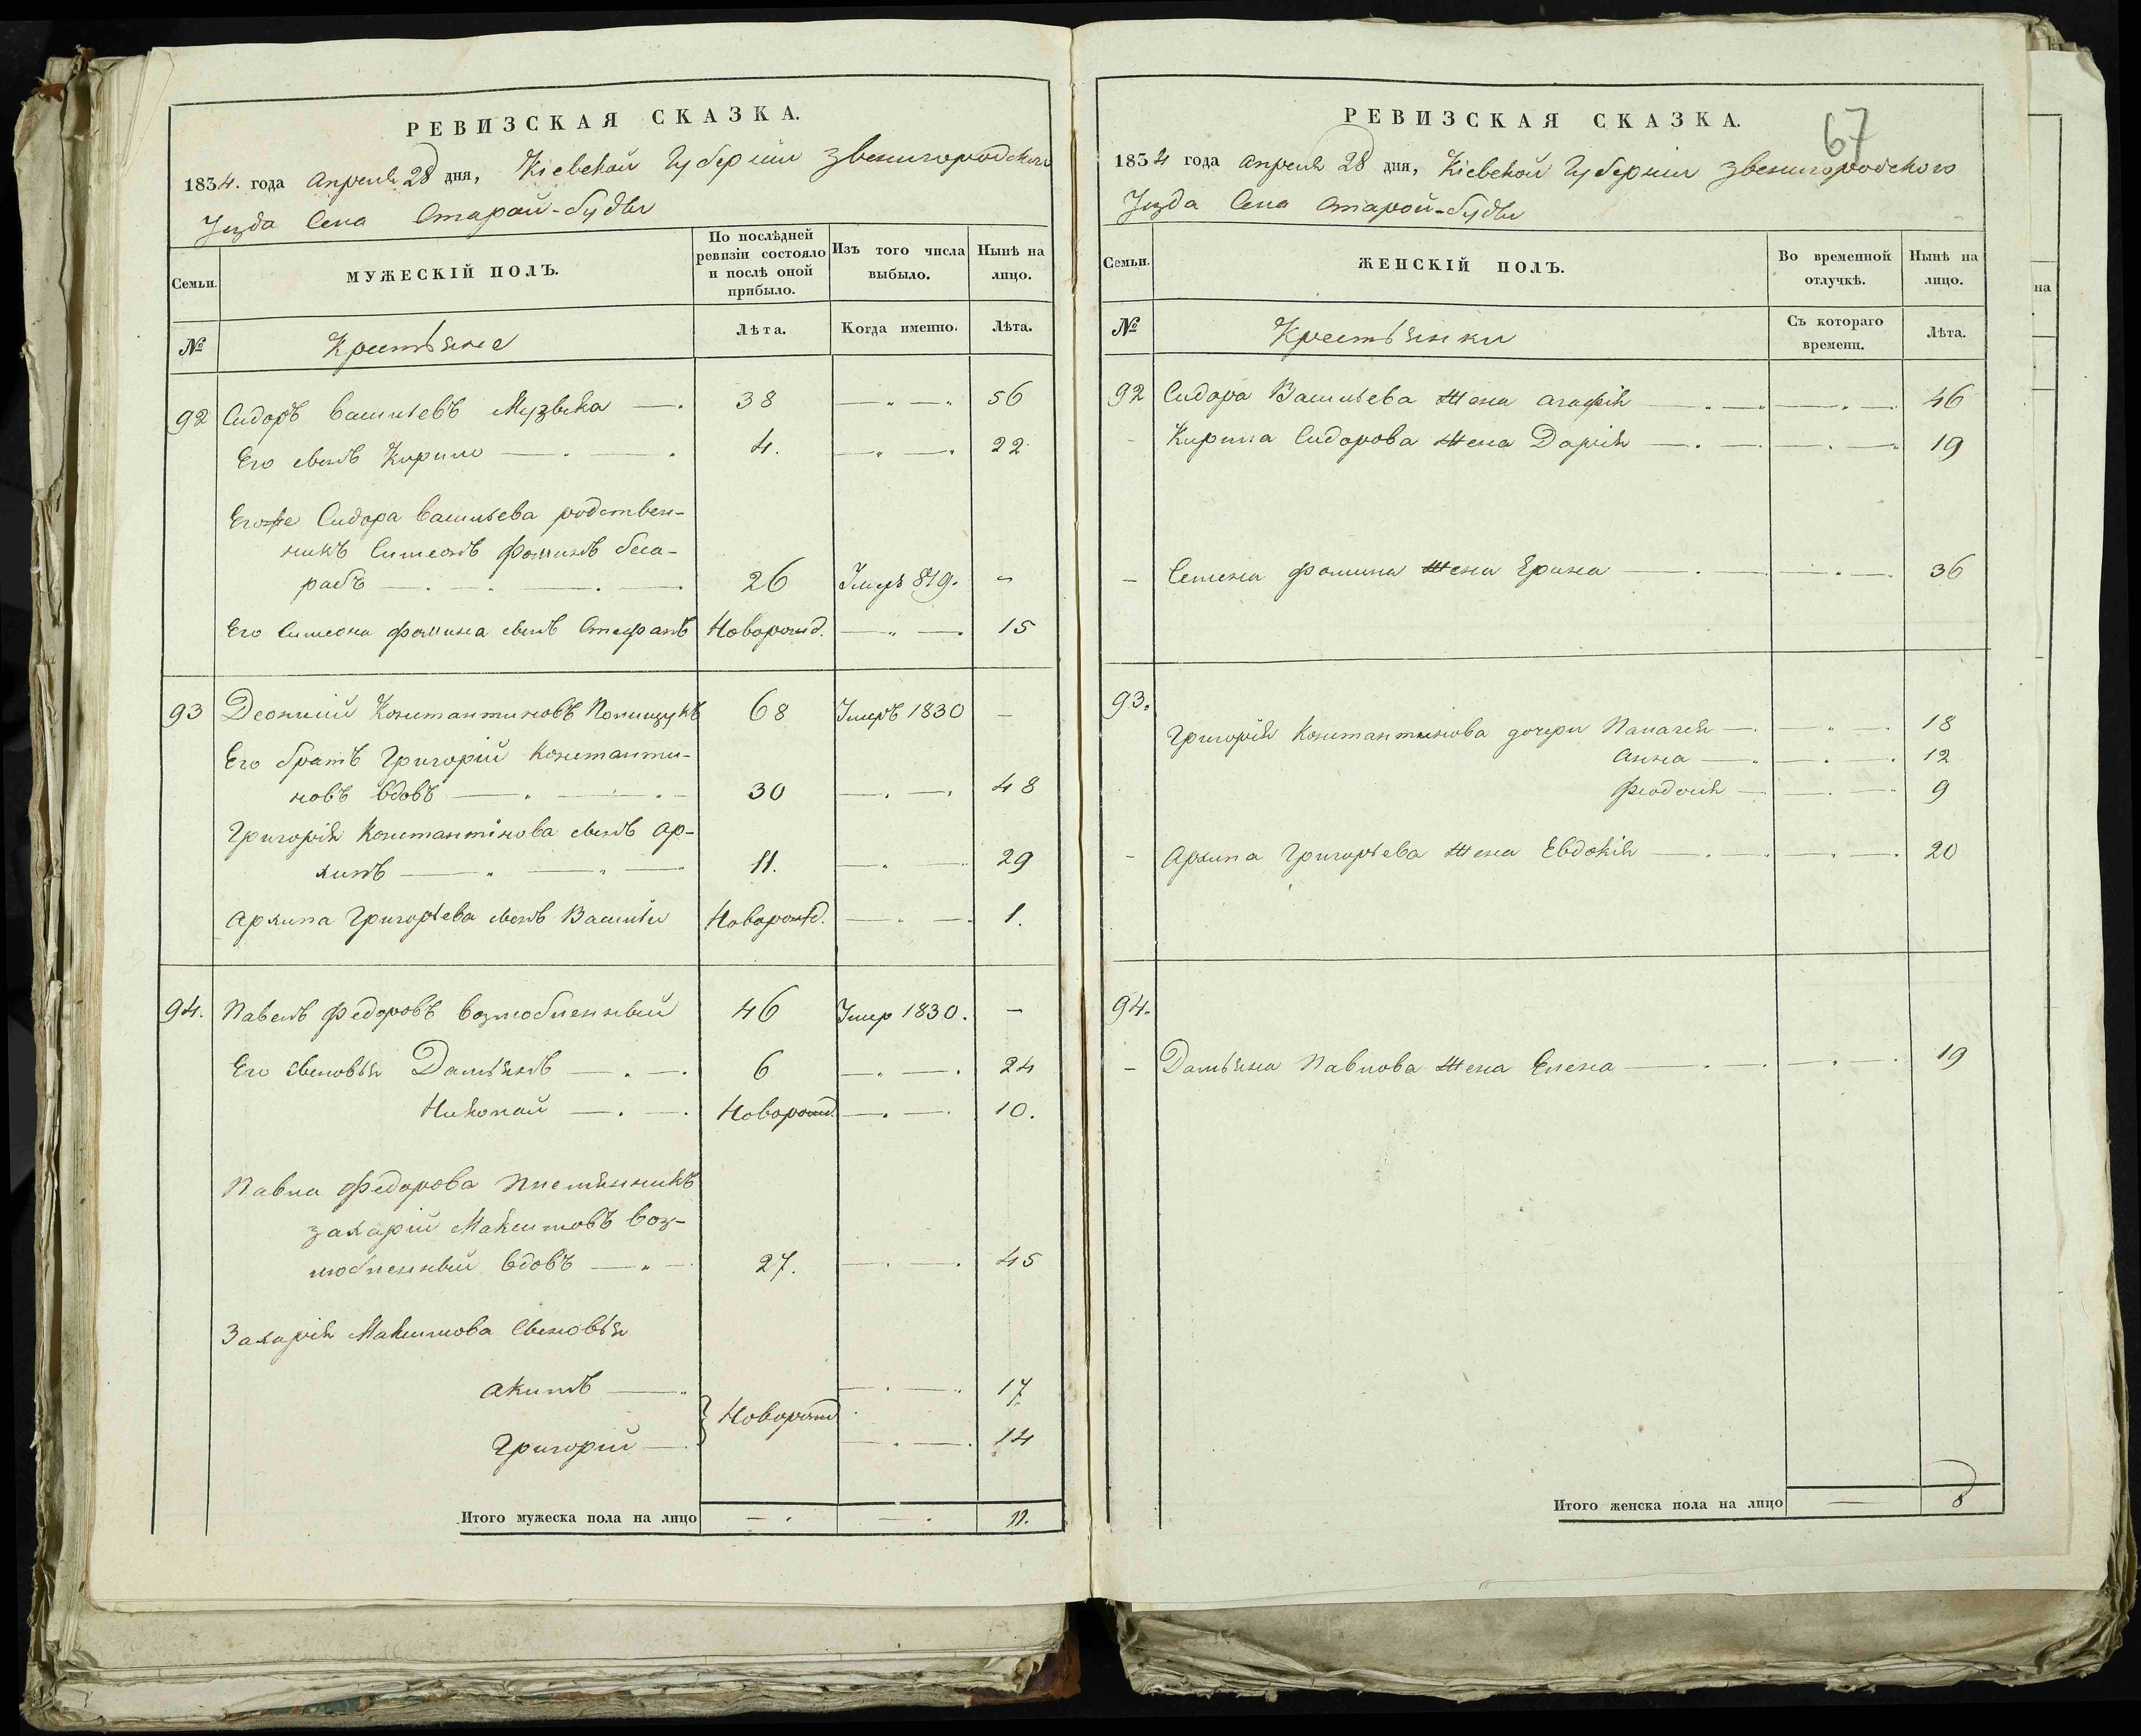 РЕВИЗСКАЯ СКАЗКА.
1834. года Апреля 28 дня, Кіевской Губерніи Звенигородского
Уезда Села Старой-буды
Семьи.
МУЖЕСКІЙ ПОЛЪ.
По послѣдней ревизіи состояло и послѣ оной прибыло.
Изъ того числа выбыло.
Нынѣ на лицо.
№
Крестьяне
Лѣта.
Когда именно.
Лѣта.
92 Сидоръ Васильевъ Музыка 38 56
Его сынъ Кирило 4. 22
Егоже Сидора Васильева родствен-
никъ Симеонъ Фоминъ беса-
рабъ 26 Умеръ 819. -
Его Симеона Фомина сынъ Стефанъ Новорожд. 15
93 Леонтий Константиновъ 68 Умеръ 1830 -
Его братъ Григорий Константи-
новъ вдовъ 30 48
Григорія Константінова сынъ Ар-
хипъ 11. 29
Архипа Григорьева сынъ Василій Новорожд. 1.
94. Павелъ Федоровъ возлюбленный 46 Умер 1830. -
Его сыновья Дамьянъ 6 24
Николай Новорожд. 10.
Павла Федорова племянникъ
Захарій Максимовъ воз-
любленный вдовъ 27. 45
Захарія Максимова сыновья
Акимъ 17
Новорожд
Григорий 14
Итого мужеска пола на лицо 11.
РЕВИЗСКАЯ СКАЗКА.
67
1834 года Апреля 28 дня, Кіевской Губерніи Звенигородского
Уезда Села Старой-буды
Семьи.
ЖЕНСКІЙ ПОЛЪ.
Во временной отлучкѣ.
Нынѣ на лицо.
№
Крестьянки
Съ котораго времени.
Лѣта.
92 Сидора Васильева жена Агафія 46
- Кирила Сидорова жена Дарія 19
- Семена Фомина жена Ерина 36
93.
Григорія Константинова дочери Палагея 18
Анна 12
Феодосія 9
- Архипа Григорьева жена Евдокія 20
94.
- Дамьяна Павлова жена Елена 19
Итого женска пола на лицо — 8
на